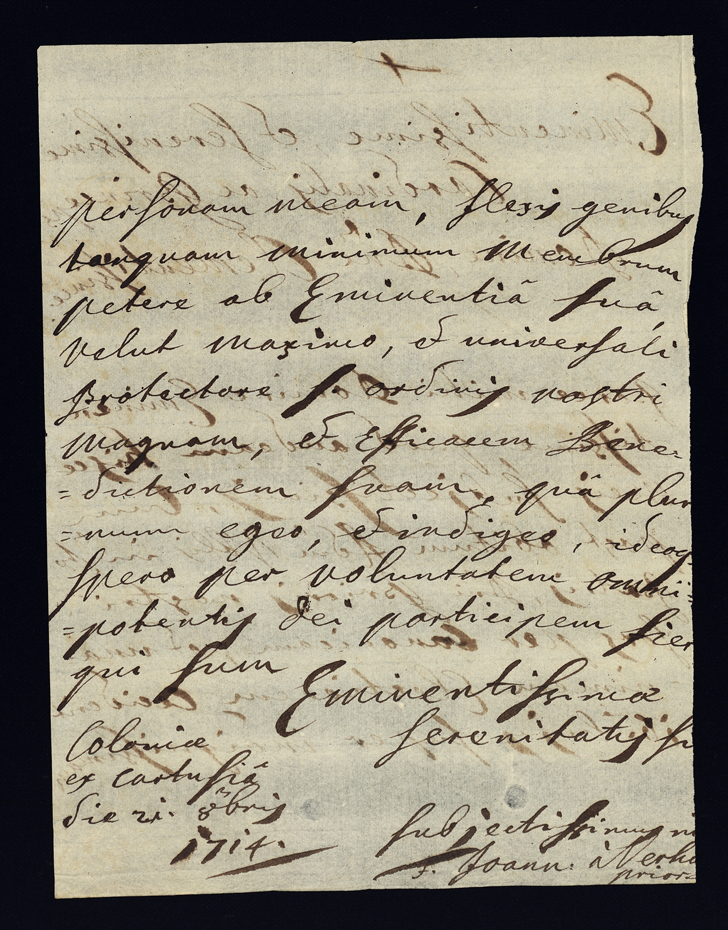 personam meam, flexis genibus
tanquam minimum Membrum
petere ab Eminentiâ suâ,
velut maximo, et universali
Protectore s. ordinis nostri
magnam, et Efficacem Bene-
=dictionem suam, quâ pluri
=mum egeo, et indigeo, ideoq
spero per voluntatem omni=
=potentis dei participem fier
qui sum
Eminentissimæ
Serenitatis su
Coloniæ
ex cartusiâ
die 21. 8bris
1714.
subjectissimus
f. Joann: à
prior